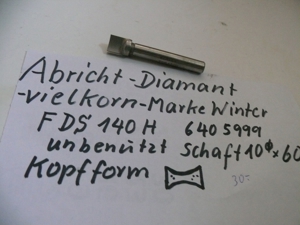 Abricht-Diamant
-vielkorn-Marke Winter
FDS 140 H 6405999
unbenützt Schaft 10ø×60
Kopfform
30-